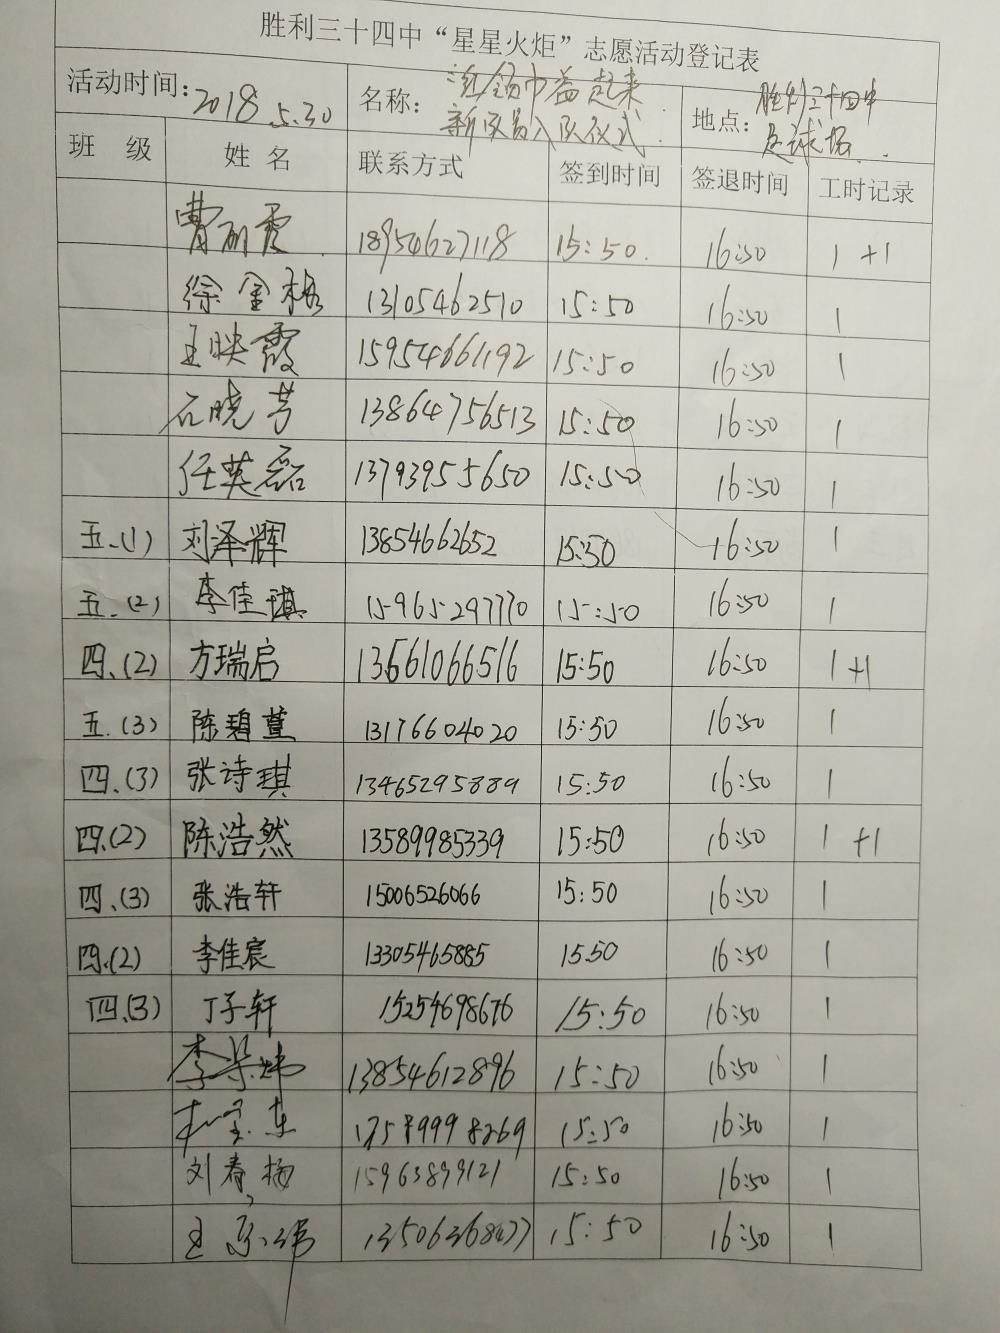 胜利三十四中“星星火炬”志愿活动登记表
活动时间: 2018.5.30 名称: 红领巾益起来 新队员入队仪式 地点: 胜利三十四中 足球场
班 级 姓 名 联系方式 签到时间 签退时间 工时记录
曹丽霞 18954627118 15:50 16:50 1 +1
徐金梅 13105462510 15:50 16:50 1
王映霞 15954661192 15:50 16:50 1
石晓芳 13864756513 15:50 16:50 1
任英磊 13793955650 15:50 16:50 1
五.(1) 刘泽辉 13854662652 15:50 16:50 1
五.(2) 李佳琪 15965297770 15:50 16:50 1
四.(2) 方瑞启 13561066516 15:50 16:50 1 +1
五.(3) 陈碧萱 13176604020 15:50 16:50 1
四.(3) 张诗琪 13465295889 15:50 16:50 1
四.(2) 陈浩然 13589985339 15:50 16:50 1 +1
四.(3) 张浩轩 15006526066 15:50 16:50 1
四.(2) 李佳宸 13305465885 15:50 16:50 1
四.(3) 丁子轩 15254698676 15:50 16:50 1
李荣炜 13854612896 15:50 16:50 1
15:50 16:50 1
刘春梅 15963899121 15:50 16:50 1
王 13506368477 15:50 16:50 1